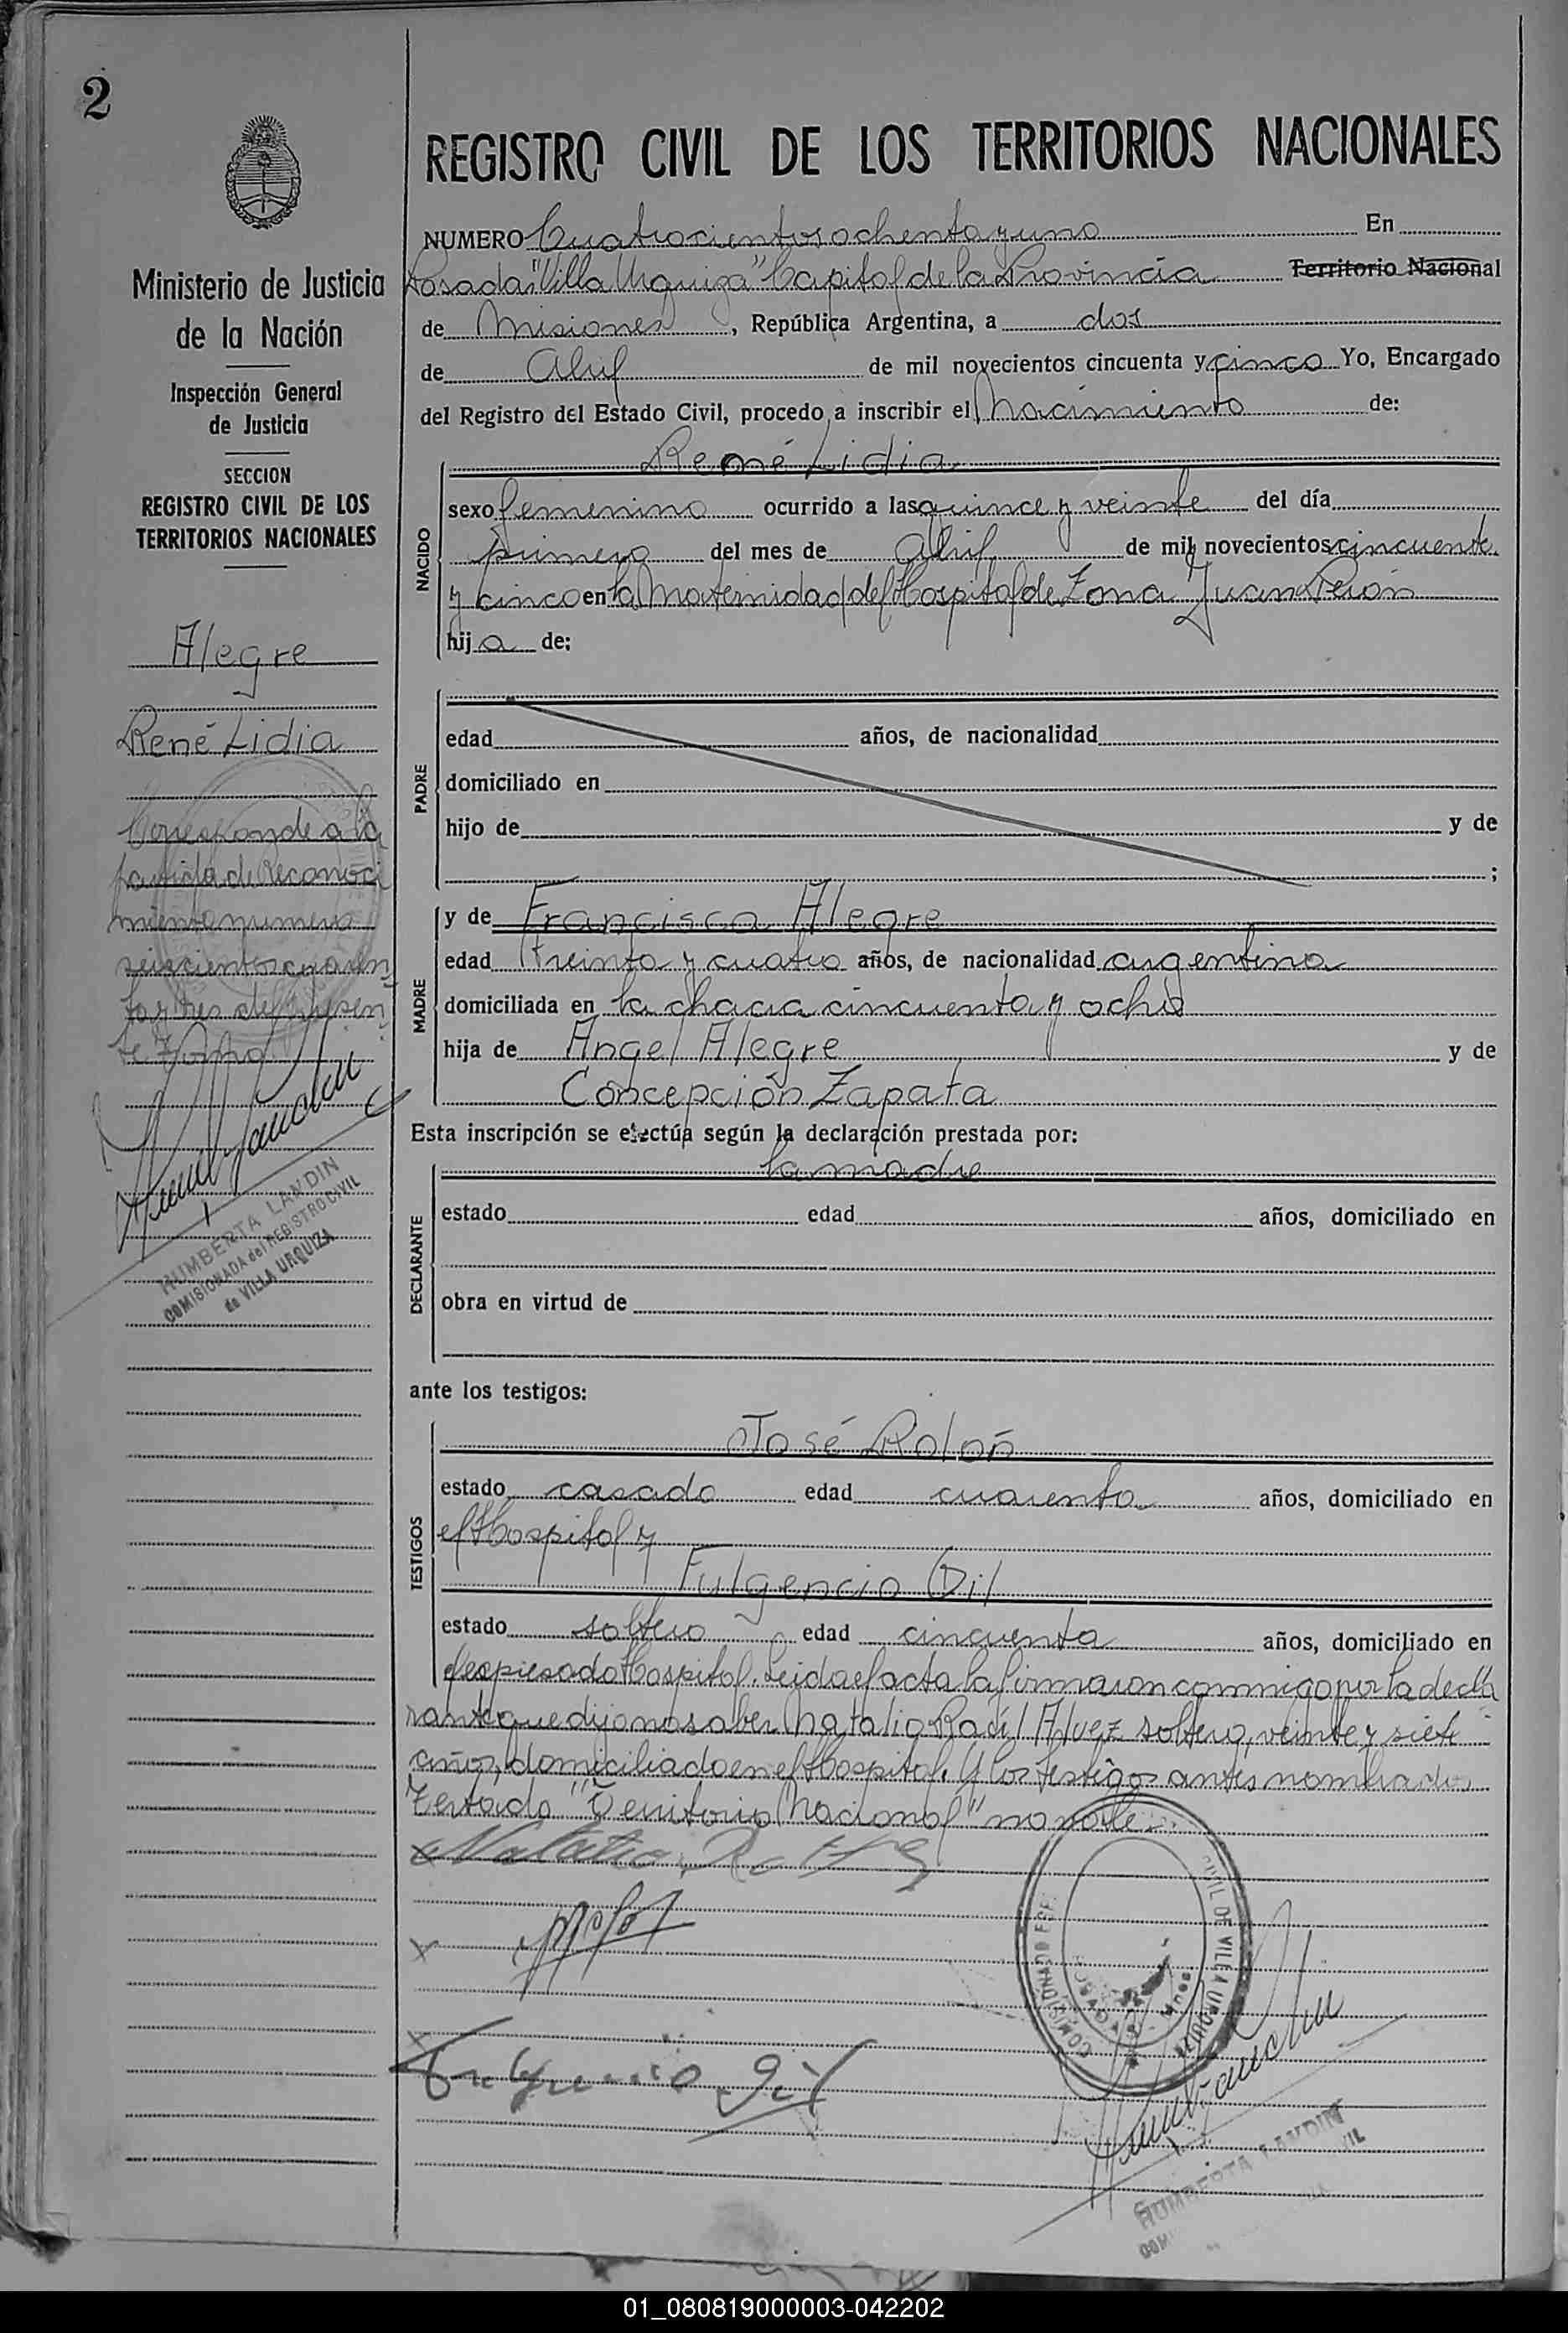 2
REGISTRO CIVIL DE LOS TERRITORIOS NACIONALES
Ministerio de Justicia
de la Nación
Inspección General
de Justicia
SECCION
REGISTRO CIVIL DE LOS
TERRITORIOS NACIONALES
Alegre
René Lidia
Corresponde a la
partida de Reconoci
miento numero
seiscientos cuaren
ta y tres del presen
te Tomo
HUMBERTA LANDIN
COMISIONADA del REGISTRO CIVIL
de VILLA URQUIZA
NUMERO Cuatrocientos ochenta y uno En
Posadas "Villa Urquiza" Capital de la Provincia Territorio Nacional
de Misiones, República Argentina, a dos
de Abril de mil novecientos cincuenta y cinco Yo, Encargado
del Registro del Estado Civil, procedo a inscribir el Nacimiento de:
NACIDO
René Lidia
sexo femenino ocurrido a las quince y veinte del día
primero del mes de Abril de mil novecientos cincuenta
y cinco en la Maternidad del Hospital de Zona Juan Perón
hija de:
PADRE
edad años, de nacionalidad
domiciliado en
hijo de y de
;
MADRE
y de Francisca Alegre
edad treinta y cuatro años, de nacionalidad argentina
domiciliada en la chacra cincuenta y ocho
hija de Angel Alegre y de
Concepción Zapata
Esta inscripción se efectúa según la declaración prestada por:
DECLARANTE
la madre
estado edad años, domiciliado en
obra en virtud de
ante los testigos:
TESTIGOS
José Rolón
estado casado edad cuarenta años, domiciliado en
el Hospital y
Fulgencio Gil
estado soltero edad cincuenta años, domiciliado en
el expresado Hospital. Leida el acta la firmaron conmigo por la decla
rante que dijo no saber Natalio Raúl Alvez soltero, veinte y siete
años, domiciliado en el Hospital. Y los testigos antes nombrados
Testado "Territorio Nacional" no vale.
Natalio R.
Fulgencio Gil
CIVIL DE VILLA URQUIZA
HUMBERTA LANDIN
01_080819000003-042202